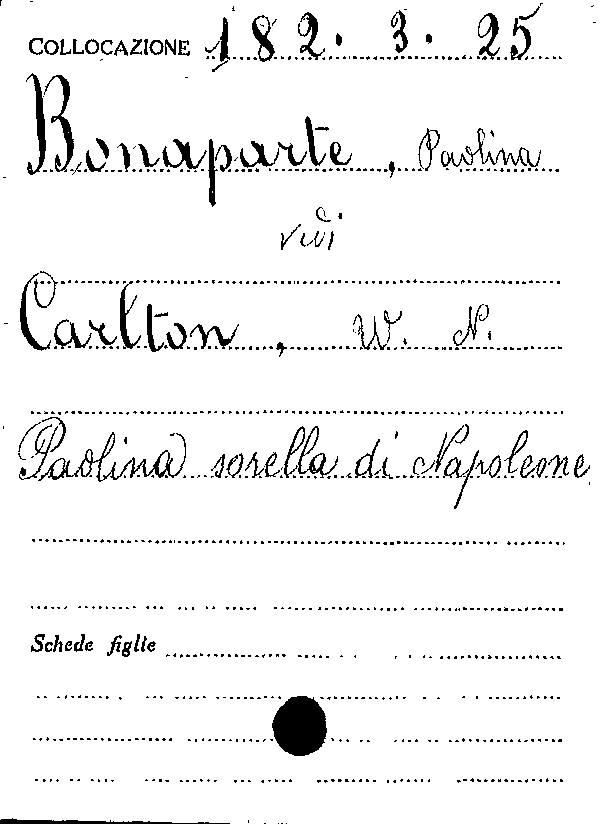 COLLOCAZIONE 182. 3. 25
Bonaparte, Paolina
vedi
Carlton, W. N.
Paolina sorella di Napoleone
Schede figlie